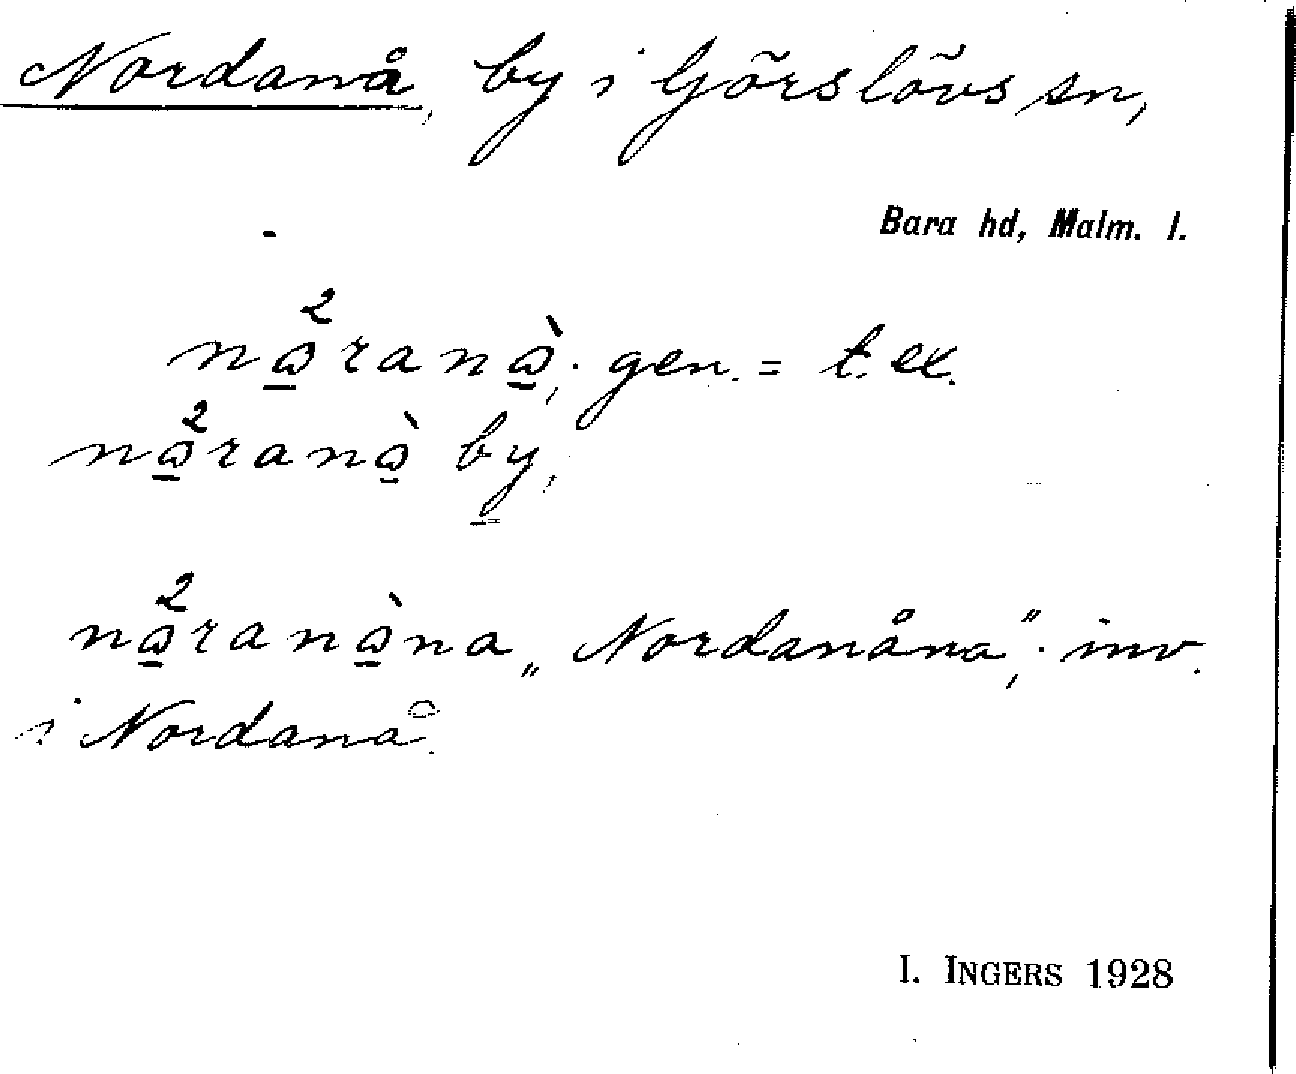 Nordanå, by i Görslövs sn,
Bara hd, Malm. l.
nω̲²ranὼ̲; gen. = t. ex.
nω̲²ranὼ̲ by̲,
nω̲²ranὼ̲na „Nordanåna”; inv.
i Nordanå.
I. INGERS 1928